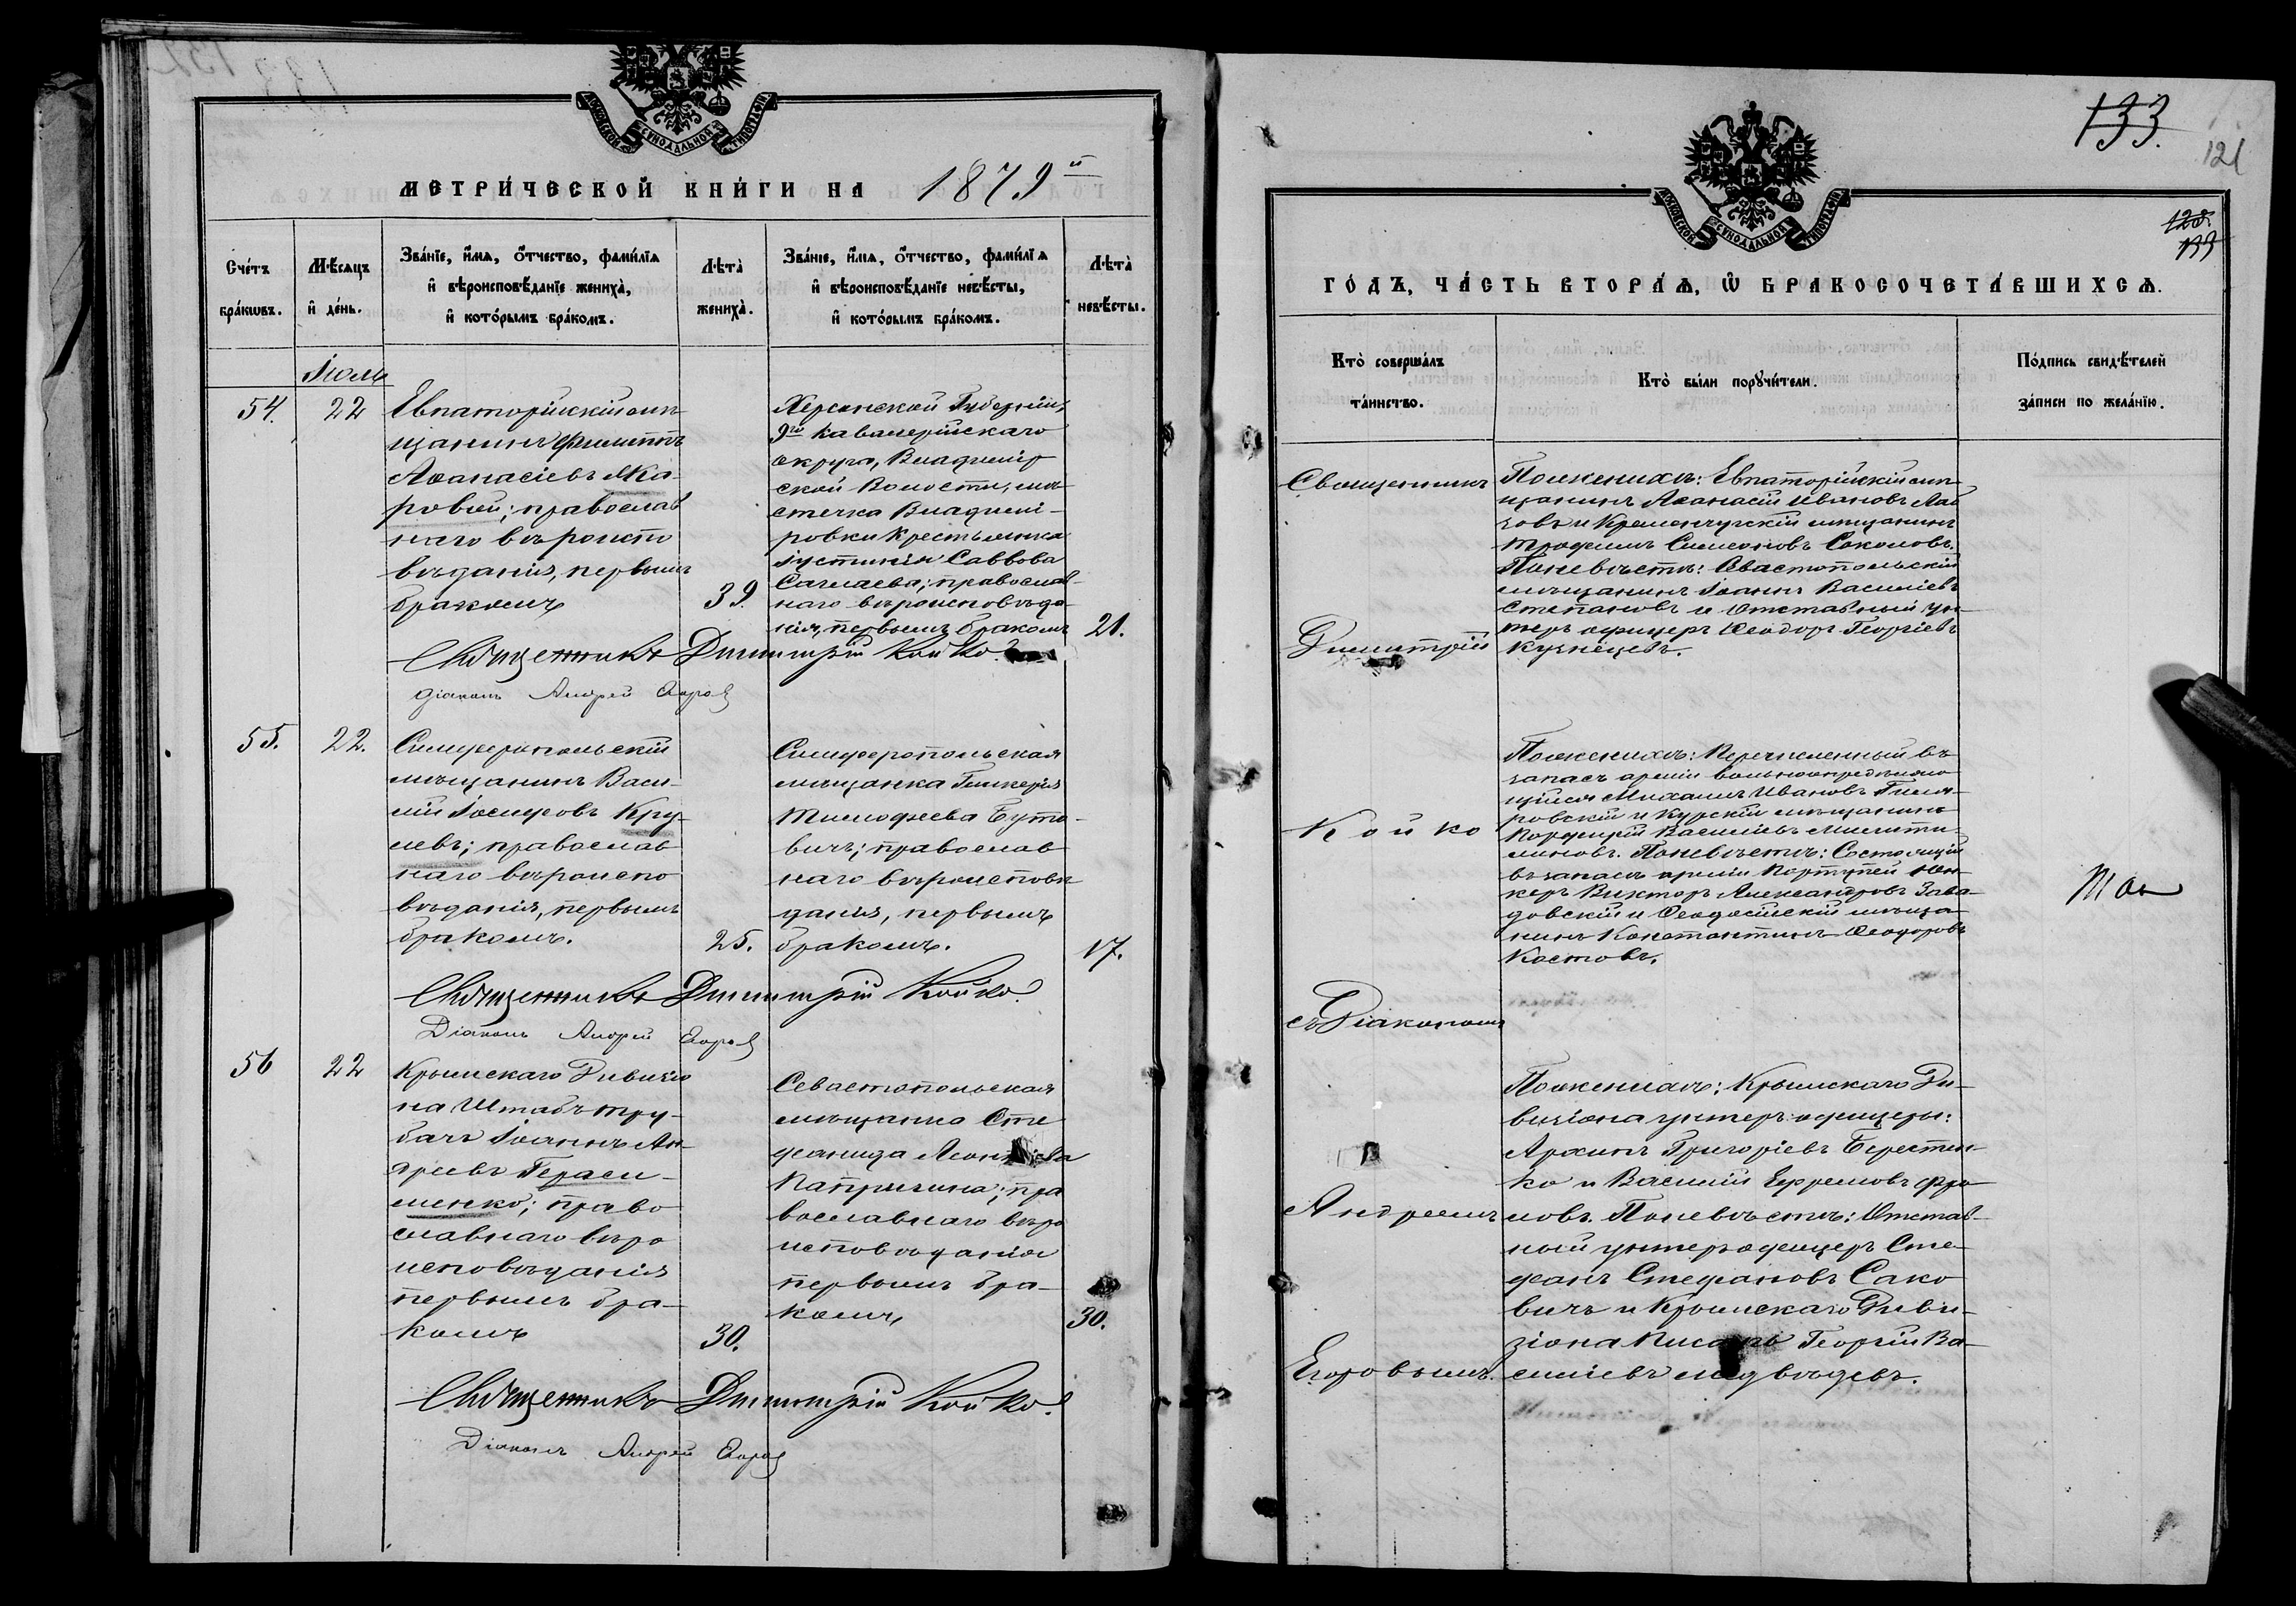 МОСКОВСКОЙ СѴНОДАЛЬНОЙ ТИПОГРАФІИ
МЕТРИ́ЧЕСКОЙ КНИ́ГИ НА 1879й
Сче́тъ бра́кѡвъ.
Мѣ́сяцъ и҆ де́нь.
Зва́нїе, и҆́мя, о҆́тчество, фами́лїя
и҆ вѣроисповѣ́данїе жениха̀,
и҆ кото́рымъ бра́комъ.
Лѣта̀ жениха̀.
Зва́нїе, и҆́мя, о҆́тчество, фами́лїя
и҆ вѣроисповѣ́данїе невѣ́сты,
и҆ кото́рымъ бра́комъ.
Лѣта̀ невѣ́сты.
Іюль
54.
22
Евпаторійскій мѣ-
щанинъ Филиппъ
Аѳанасіевъ Ма-
ровъ; православ
наго вѣроиспо
вѣданія, первымъ
бракомъ
39.
Херсонской Губерніи,
9го Кавалерійскаго
округа, Владимір
ской Волости, мѣ-
стечка Владимі-
ровки Крестьянка
Іустинія Саввова
православ-
наго вѣроисповѣда-
нія, первымъ бракомъ
21.
Священникъ Димитрій Койко.
діаконъ Андрей Егоров
55.
22.
Симферопольскій
мѣщанинъ Васи-
лій Іосифовъ Кру-
левъ; православ
наго вѣроиспо
вѣданія, первымъ
бракомъ.
25.
Симферопольская
мѣщанка Гликерія
Тимофеева Буто-
вичъ; православ
наго вѣроисповѣ
данія, первымъ
бракомъ.
17.
Священникъ Димитрій Койко.
Діаконъ Андрей Егоров
56
22
Крымскаго Дивизіо
на Штабъ-тру-
бачъ Іоаннъ Ан-
дреевъ Гераси-
менко; право
славнаго вѣро
исповѣданія
первымъ бра-
комъ
30.
Севастопольская
мѣщанка Сте
фанида Леонтіева
Капричина; пра
вославнаго вѣро
исповѣданія
первымъ бра-
комъ,
30.
Священникъ Димитрій Койко.
Діаконъ Андрей Егоров
133.
121
128.
133
МОСКОВСКОЙ СѴНОДАЛЬНОЙ ТИПОГРАФІИ
ГО́ДЪ, ЧА́СТЬ ВТОРА́Я, Ѡ҆ БРАКОСОЧЕТА́ВШИХСЯ.
Кто̀ соверша́лъ
та́инство.
Кто̀ бы́ли порꙋчи́тели.
По́дпись свидѣ́телей
за́писи по жела́нїю.
Священникъ
Димитрій
Койко
съ Діакономъ
Андреемъ
Егоровымъ.
По женихѣ: Евпаторійскій мѣ-
щанинъ Аѳанасій Ивановъ
и Кременчугскій мѣщанинъ
Трофимъ Симеоновъ Соколовъ.
По невѣстѣ: Севастопольскій
мѣщанинъ Іоаннъ Василіевъ
Степановъ и Отставный ун-
теръ офицеръ Ѳеодоръ Георгіевъ
Кузнецовъ.
По женихѣ: Перечисленный въ
запасъ арміи вольноопредѣляю-
щійся Михаилъ Ивановъ Гиля-
ровскій и Курскій мѣщанинъ
Порфирій Василіевъ
По невѣстѣ: Состоящій
въ запасѣ арміи Портупей Юн-
керъ Викторъ Александровъ Зава-
довскій и Ѳеодосійскій мѣща-
нинъ Константинъ Ѳеодоровъ
Костовъ.
По женихѣ: Крымскаго Ди-
визіона унтеръ-офицеры:
Архипъ Григоріевъ Берестен-
ко и Василій Ефремовъ Фро
ловъ. По невѣстѣ: Отстав-
ной унтеръ офицеръ Сте-
фанъ Стефановъ Сако
вичъ и Крымскаго Диви-
зіона Писарь Георгій Ва-
силіевъ Медвѣдевъ.